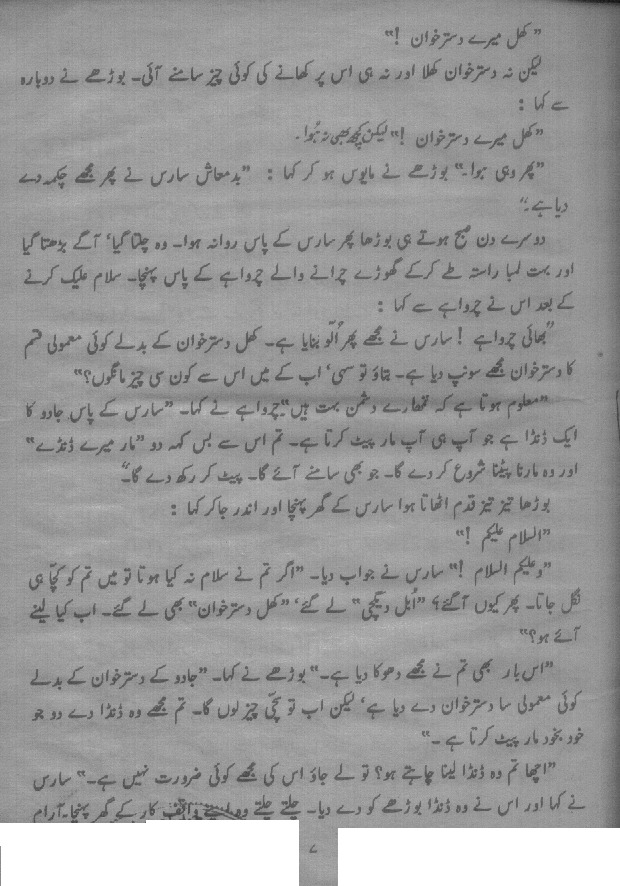 ”کھل میرے دسترخوان !“
لیکن نہ دسترخوان کھلا اور نہ ہی اس پر کھانے کی کوئی چیز سامنے آئی۔ بوڑھے نے دوبارہ
سے کہا :
”کھل میرے دسترخوان !“ لیکن کچھ بھی نہ ہُوا۔
”پھر وہی ہوا۔“ بوڑھے نے مایوس ہو کر کہا : ”بدمعاش سارس نے پھر مجھے چکمہ دے
دیا ہے۔“
دوسرے دن صبح ہوتے ہی بوڑھا پھر سارس کے پاس روانہ ہوا۔ وہ چلتا گیا، آگے بڑھتا گیا
اور بہت لمبا راستہ طے کرکے گھوڑے چرانے والے چرواہے کے پاس پہنچا۔ سلام علیک کرنے
کے بعد اس نے چرواہے سے کہا :
”بھائی چرواہے ! سارس نے مجھے پھر اُلّو بنایا ہے۔ کھل دسترخوان کے بدلے کوئی معمولی قسم
کا دسترخوان مجھے سونپ دیا ہے۔ بتاؤ تو سہی، اب کے میں اس سے کون سی چیز مانگوں؟“
”معلوم ہوتا ہے کہ تمھارے دشمن بہت ہیں“۔چرواہے نے کہا۔ ”سارس کے پاس جادو کا
ایک ڈنڈا ہے جو آپ ہی آپ مار پیٹ کرتا ہے۔ تم اس سے بس کہہ دو ”مار میرے ڈنڈے“
اور وہ مارنا پیٹنا شروع کر دے گا۔ جو بھی سامنے آئے گا۔ پیٹ کر رکھ دے گا۔“
بوڑھا تیز تیز قدم اٹھاتا ہوا سارس کے گھر پہنچا اور اندر جاکر کہا :
”السلام علیکم !“
”وعلیکم السلام !“ سارس نے جواب دیا۔ ”اگر تم نے سلام نہ کیا ہوتا تو میں تم کو کچّا ہی
نگل جاتا۔ پھر کیوں آگئے؟ ”اُبل دیگچی“ لے گئے، ”کھل دسترخوان“ بھی لے گئے۔ اب کیا لینے
آئے ہو؟“
”اس بار بھی تم نے مجھے دھوکا دیا ہے۔“ بوڑھے نے کہا۔ ”جادو کے دسترخوان کے بدلے
کوئی معمولی سا دسترخوان دے دیا ہے، لیکن اب تو سچّی چیز لوں گا۔ تم مجھے وہ ڈنڈا دے دو جو
خود بخود مار پیٹ کرتا ہے ۔“
”اچھا تم وہ ڈنڈا لینا چاہتے ہو؟ تو لے جاؤ اس کی مجھے کوئی ضرورت نہیں ہے۔“ سارس
نے کہا اور اس نے وہ ڈنڈا بوڑھے کو دے دیا۔ چلتے چلتے وہ اپنے واقف کار کے گھر پہنچا۔آرام
۷